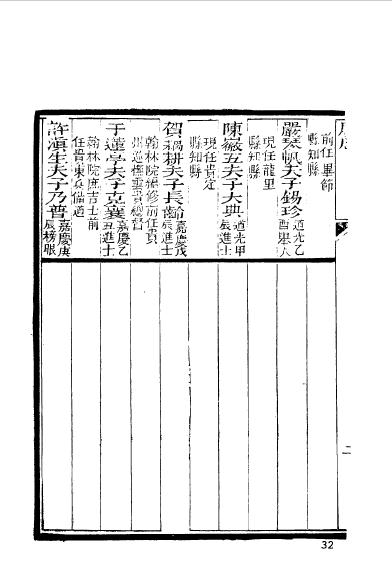 前任畢節
縣知縣
嚴琴帆夫子錫珍道光乙
酉舉人
現任龍里
縣知縣
陳嶽五夫子大典道光甲
辰進士
現任貴定
縣知縣
賀耦耕夫子長齡嘉慶戊
辰進士
翰林院編修前任貴
州巡撫雲貴總督
于蓮亭夫子克襄嘉慶乙
丑進士
翰林院庶吉士前
任貴東兵備道
許滇生夫子乃普嘉慶庚
辰榜眼
二
32